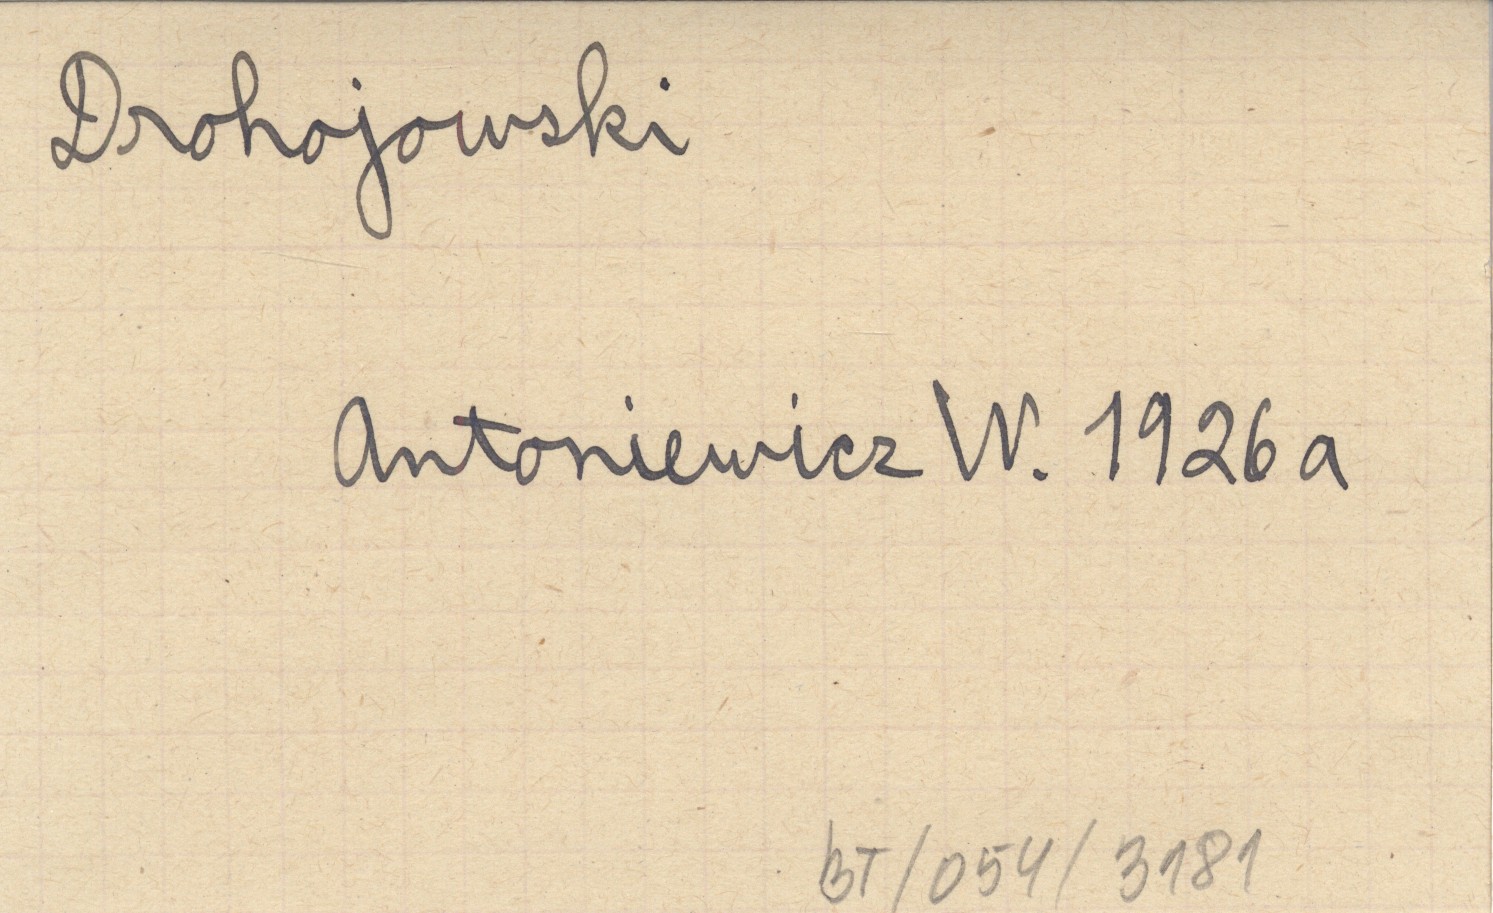 Drohojowski
Antoniewicz W. 1926a
BT/054/3181